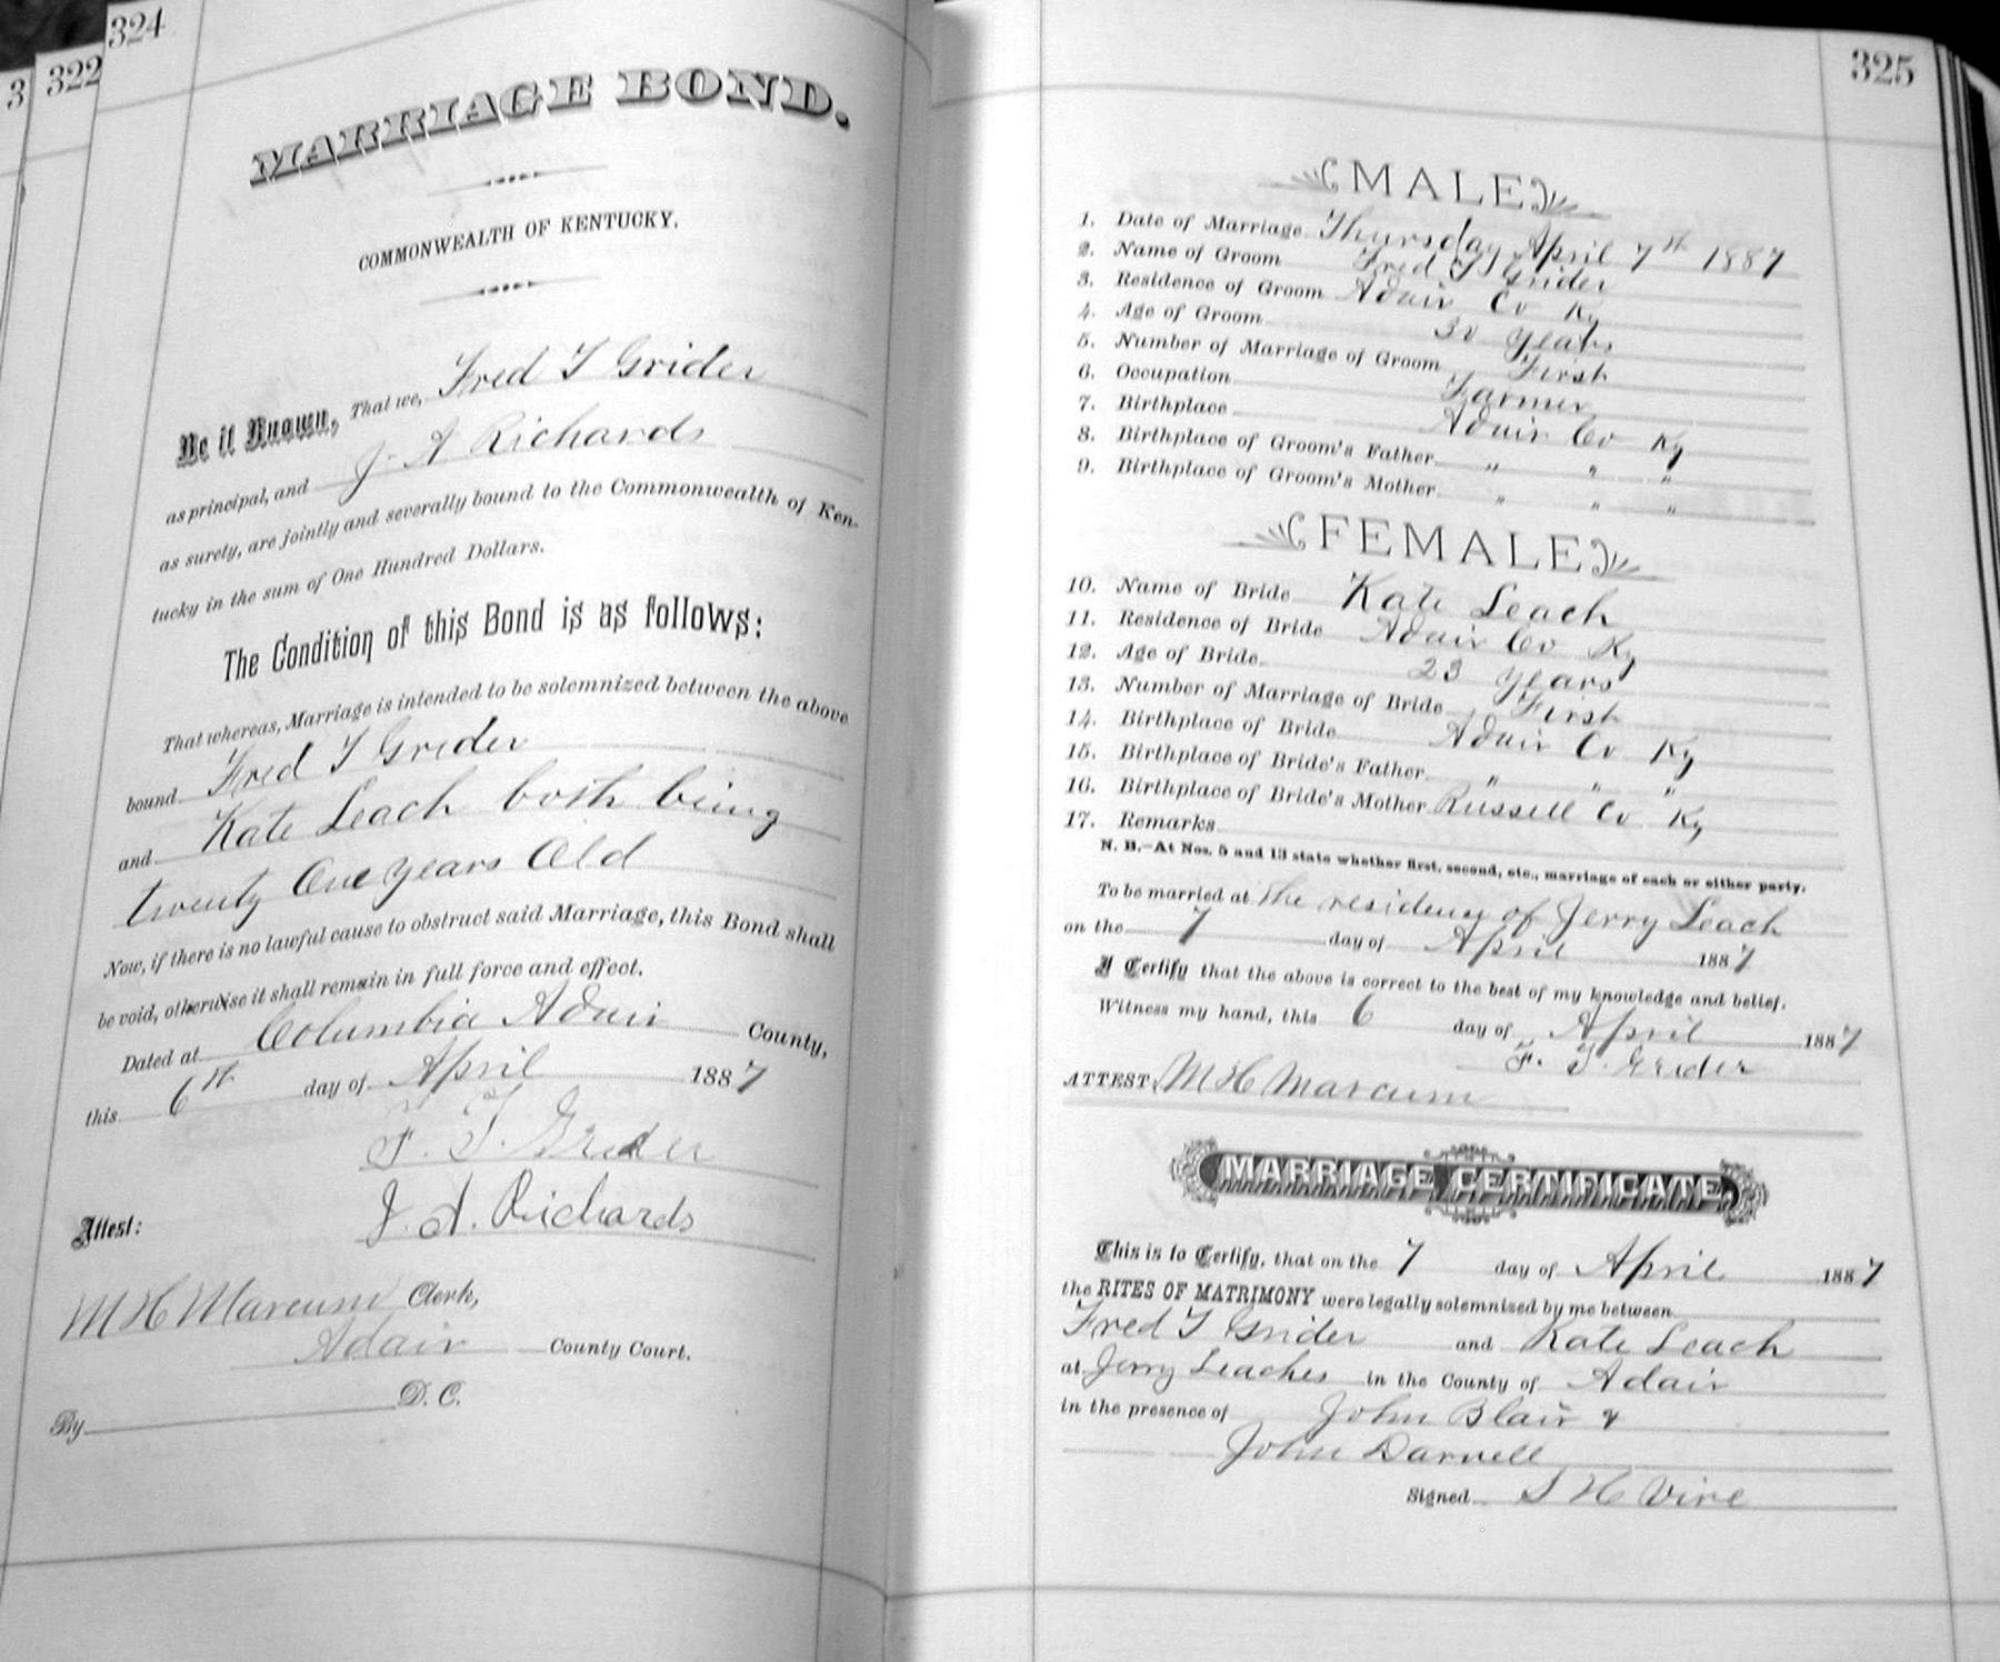 3
322
324
MARRIAGE BOND.
COMMONWEALTH OF KENTUCKY.
Be it Known, That we, Fred T Grider
as principal, and J. A Richards
as surety, are jointly and severally bound to the Commonwealth of Ken-
tucky in the sum of One Hundred Dollars.
The Condition of this Bond is as follows:
That whereas, Marriage is intended to be solemnized between the above
bound Fred T Grider
and Kate Leach both being
twenty One years Old
Now, if there is no lawful cause to obstruct said Marriage, this Bond shall
be void, otherwise it shall remain in full force and effect.
Dated at Columbia Adair County,
this 6th day of April 1887
F. T. Grider
J. A. Richards
Attest:
M H Marcum Clerk,
Adair County Court.
By D. C.
325
MALE
1. Date of Marriage Thursday April 7th 1887
2. Name of Groom Fred T Grider
3. Residence of Groom Adair Co Ky
4. Age of Groom 30 years
5. Number of Marriage of Groom First
6. Occupation Farmer
7. Birthplace Adair Co Ky
8. Birthplace of Groom's Father " " "
9. Birthplace of Groom's Mother " " "
FEMALE
10. Name of Bride Kate Leach
11. Residence of Bride Adair Co Ky
12. Age of Bride 23 years
13. Number of Marriage of Bride First
14. Birthplace of Bride Adair Co Ky
15. Birthplace of Bride's Father " " "
16. Birthplace of Bride's Mother Russell Co Ky
17. Remarks
N. B.—At Nos. 5 and 13 state whether first, second, etc., marriage of each or either party.
To be married at the residence of Jerry Leach
on the 7 day of April 1887
I Certify that the above is correct to the best of my knowledge and belief.
Witness my hand, this 6 day of April 1887
F. T. Grider
ATTEST: M H Marcum
MARRIAGE CERTIFICATE
This is to Certify, that on the 7 day of April 1887
the RITES OF MATRIMONY were legally solemnized by me between
Fred T Grider and Kate Leach
at Jerry Leaches in the County of Adair
in the presence of John Blair &
John Darnell
Signed S H Vire